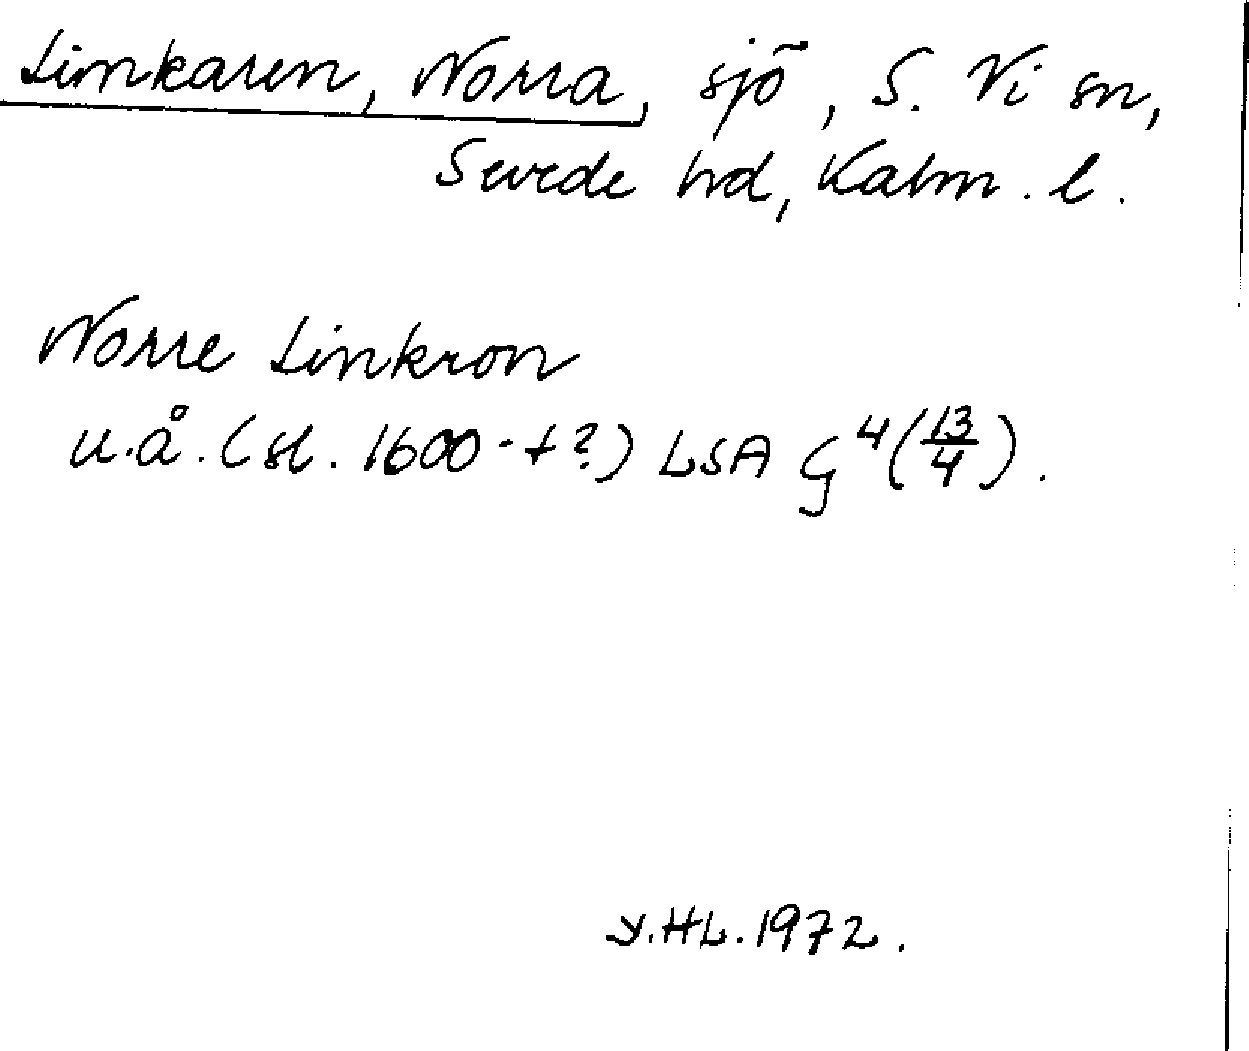 Linkaren, Norra, sjö, S. Vi sn,
Sevede hd, Kalm. l.
Norre Linkron
u.å. (sl. 1600-t?) LSA G⁴(13/4).
Y.HL.1972.